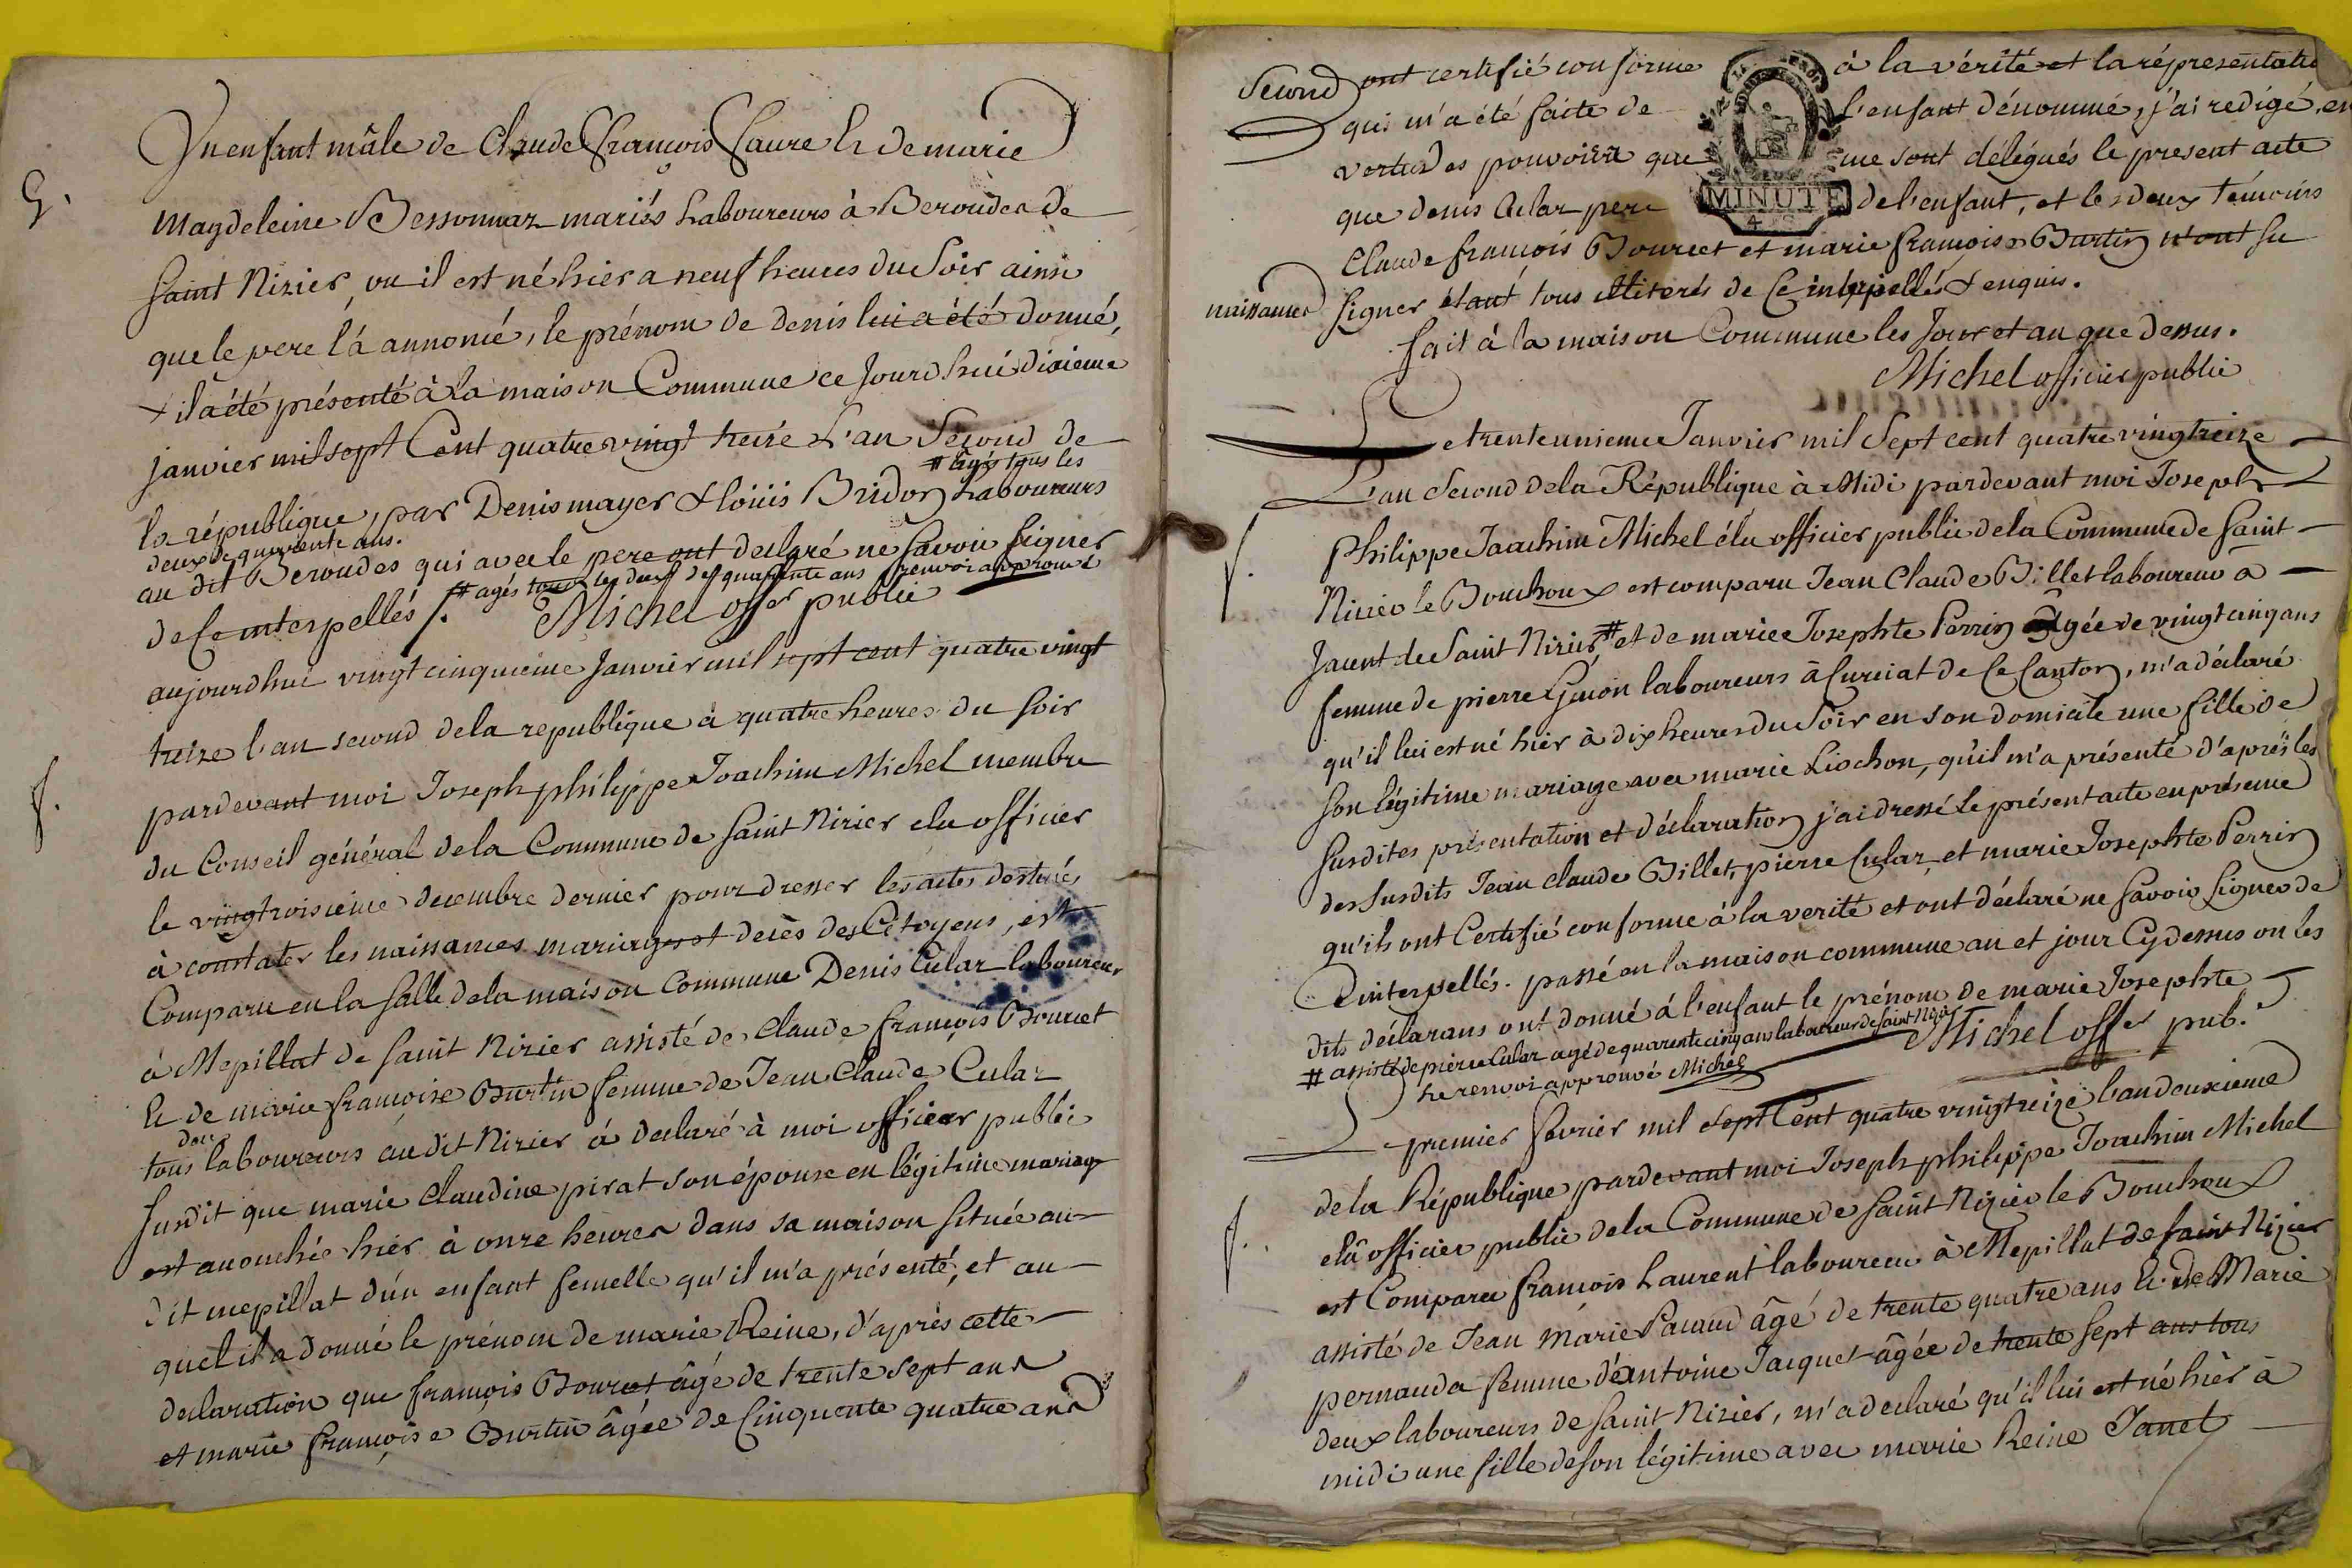 Un enfant mâle de Claude François Faure & de marie
G.
Magdeleine Bessonnaz mariés Laboureurs à Beroudes de
Saint Nizier, ou il est né hier a neuf heures du Soir ainsi
que le pere l'á annoncé, le prénom de denis lui a été donné,
il a été présenté à la maison Commune ce Jourdhui dixieme
janvier mil sept Cent quatre vingt treize L'an Second de
# âgés tous les
la république, par Denis mayer & loüis Bridon Laboureurs
deux de quarente ans.
au dit Beroudes qui avec le pere ont declaré ne savoir signer
# agés tous les deux de quarente ans renvoi approuvé
de Ce interpellés /. Michel offer public
aujourdhui vingt cinquieme Janvier mil sept cent quatre vingt
treize l'an second dela republique à quatre heures du soir
f.
pardevant moi Joseph philippe Joachim Michel membre
du Conseil général dela Commune de Saint Nizier elu officier
le vingtroisieme decembre dernier pour dresser les actes destinés
à constater les naissances mariages et decès des Citoyens, est
Comparu en la salle dela maison Commune Denis Cular laboureur
à Mepillat de saint Nizier assisté de Claude françois Bourcet
& de marie françoise Burtin femme de Jean Claude Cular
deux
tous laboureurs audit Nizier á declaré à moi officier public
susdit que marie Claudine pirat son épouse en légitime mariage
est accouchée hier à onze heures dans sa maison située au
dit mepillat d'un enfant femelle qu'il m'a présenté, et au
quel il a donné le prénom de marie Reine, d'après cette
declaration que françois Bourcet âgé de trente sept ans
et marie françoise Burtin âgée de Cinquente quatre ans
Second ont certifié conforme à la vérité et la répresentatio
qui m'a été faite de l'enfant dénommé, j'ai redigé, en
vertu des pouvoirs que me sont délégués le present acte
que denis Cular pere de l'enfant, et les deux témoins
MINUTE
Claude françois Bourcet et marie françoise Burtin n'ont su
naissances signer étant tous illiterés de Ce interpellés & enquis.
fait à la maison Commune les Jour et an que dessus.
Michel officier public
Le trente unieme Janvier mil Sept cent quatre vingtreize
L'an Second dela République à Midi pardevant moi Joseph
f.
Philippe Joachim Michel élu officier public dela Commune de Saint
Nizier le Bouchoux est comparu Jean Claude Billet laboureur à
Jacent de Saint Nizier # et de marie Josephte Perrin âgée de vingt cinq ans
femme de pierre Guion laboureurs à Curciat de Ce Canton, m'a déclaré
qu'il lui est né hier à dix heures du Soir en son domicile une fille de
son légitime mariage avec marie Liochon, qu'il m'a présenté d'après les
susdites présentation et déclaration j'ai dressé Le présent acte en présence
des susdits Jean claude Billet, pierre Cular, et marie Josephte Perrin
qu'ils ont Certifié conforme à la verité et ont déclaré ne savoir Signer de
Ce interpellés. passé en la maison commune an et jour Cy dessus on les
dits déclarans ont donné á l'enfant le prénom de marie Josephte
# assisté de pierre Cular agé de quarente cinq ans laboureur de Saint Nizier
Michel offer pub.
Le renvoi approuvé Michel
Le premier fevrier mil Sept Cent quatre vingtreize l'an deuxieme
de la République pardevant moi Joseph philippe Joachim Michel
f.
elû officier public dela Commune de Saint Nizier le Bouchoux
est Comparu françois Laurent laboureur à Mepillat de saint Nizier
assisté de Jean Marie Pacaud âgé de trente quatre ans & de Marie
pernauda femme d'Antoine Jacquet âgée de trente sept ans tous
deux laboureurs de Saint Nizier, m'a declaré qu'il lui est né hier à
midi une fille de son légitime avec marie Reine Janet